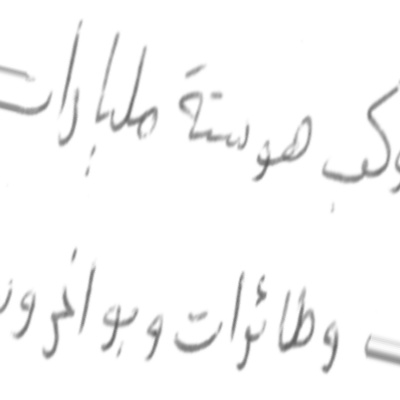 وكب هو ستة مليارات
وطائرات وبواخر